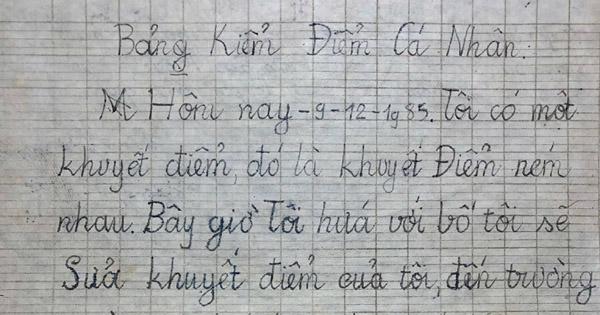 Bảng Kiểm Điểm Cá Nhân.
Hôm nay - 9 - 12 - 1985. Tôi có một
khuyết điểm, đó là khuyết Điểm ném
nhau. Bây giờ Tôi hứa với bố tôi sẽ
Sửa khuyết điểm của tôi, đến trường